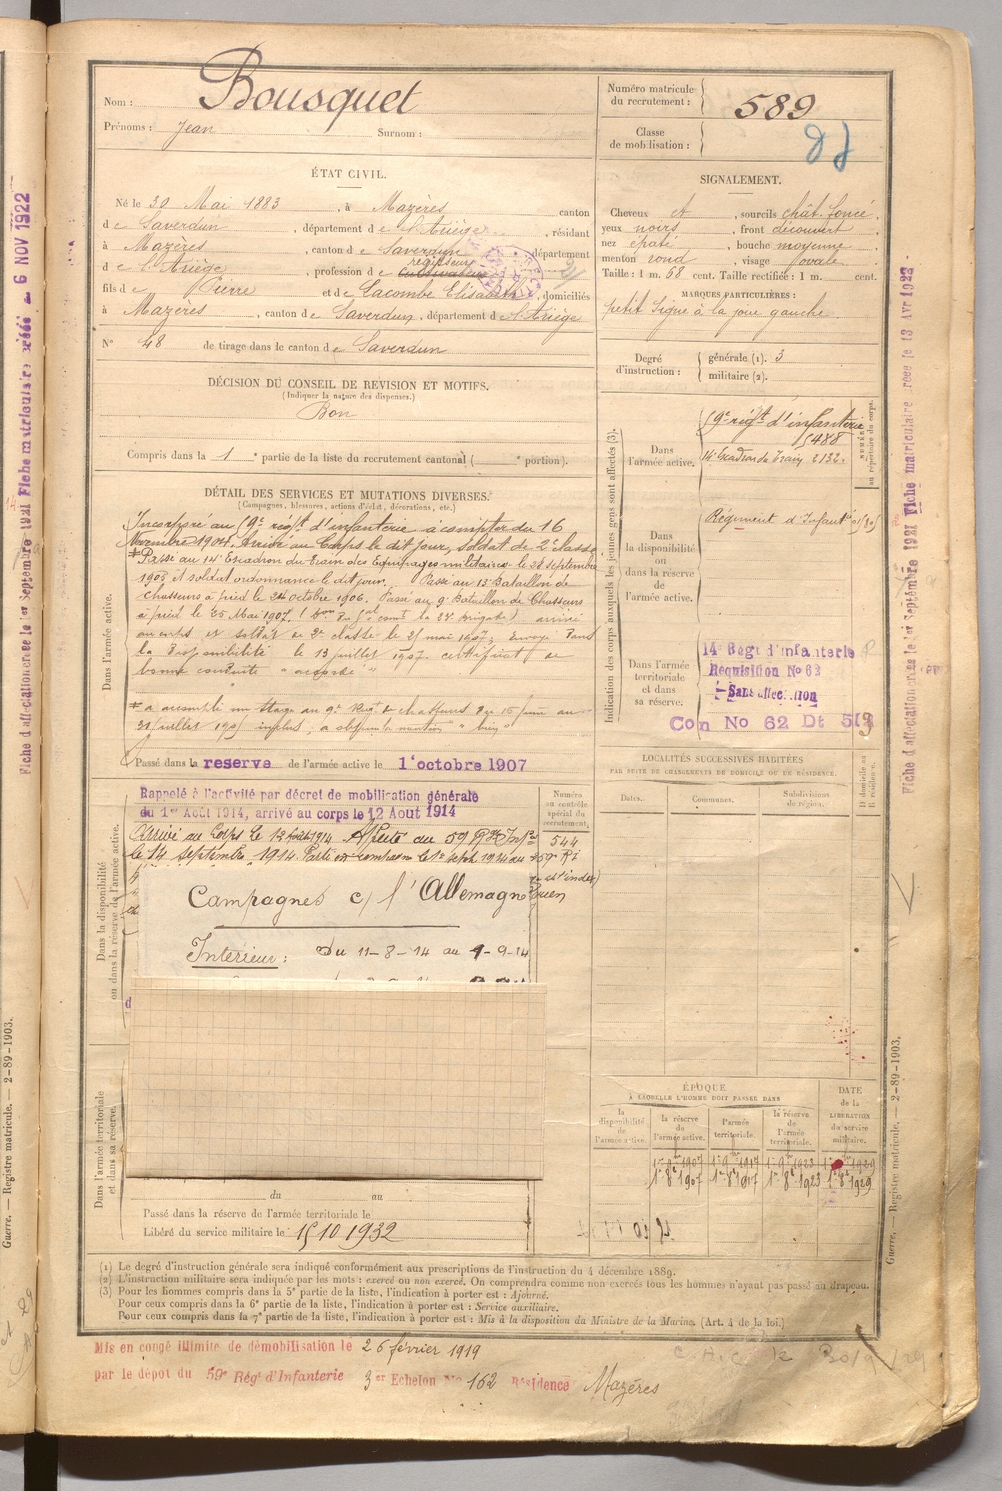 Nom : Bousquet
Prénoms : Jean Surnom :
Numéro matricule du recrutement : 589
Classe de mobilisation :
ÉTAT CIVIL.
Né le 30 Mai 1883, à Mazères canton
de Saverdun, département de l'Ariège, résidant
à Mazères, canton de Saverdun, département
régisseur
de l'Ariège, profession de cultivateur
fils de Pierre et de Lacombe Elisabeth, domiciliés
à Mazères, canton de Saverdun, département de l'Ariège
N° 48 de tirage dans le canton de Saverdun
DÉCISION DU CONSEIL DE REVISION ET MOTIFS.
(Indiquer la nature des dispenses.)
Bon
Compris dans la 1 e partie de la liste du recrutement cantonal ( e portion).
SIGNALEMENT.
Cheveux et, sourcils chât. foncé.
yeux noirs, front découvert,
nez épaté, bouche moyenne,
menton rond, visage ovale.
Taille : 1 m. 68 cent. Taille rectifiée : 1 m. cent.
MARQUES PARTICULIÈRES :
petit signe à la joue gauche.
Degré d'instruction : générale (1). 3
militaire (2).
DÉTAIL DES SERVICES ET MUTATIONS DIVERSES.
(Campagnes, blessures, actions d'éclat, décorations, etc.)
Dans l'armée active.
Incorporé au 9e régt d'infanterie à compter du 16
Novembre 1904. Arrivé au Corps le dit jour, soldat de 2e classe.
Passé au 14e Escadron du Train des Equipages militaires le 28 septembre
1905 et soldat ordonnance le dit jour. Passé au 13e Bataillon de
Chasseurs à pied le 24 octobre 1906. Passé au 9e Bataillon de Chasseurs
à pied le 25 Mai 1907. arrivé
au corps et soldat de 2e classe le mai 1907; Envoyé dans
la disponibilité le 13 juillet 1907. certificat de
bonne conduite "accordé"
a accompli un stage au 9e Regt de chasseurs du 15 juin au
juillet inclus, a obtenu la mention "bien"
Passé dans la reserve de l'armée active le 1er octobre 1907
Indication des corps auxquels les jeunes gens sont affectés (3).
NUMÉRO au répertoire du corps.
Dans l'armée active.
9e régt d'infanterie
5488
14e Escadron du Train 2132.
Dans la disponibilité ou dans la réserve de l'armée active.
Régiment d'Infant
Dans l'armée territoriale et dans sa réserve.
14e Regt d'infanterie
Requisition No 62
Sans affectation
Con No 62 Dt
Dans la disponibilité ou dans la réserve de l'armée active.
Rappelé à l'activité par décret de mobilisation générale
du 1er Août 1914, arrivé au corps le 12 Aout 1914
Arrivé au Corps le 12 Août 1914 Affecté au 59 Rt Infie
le 14 septembre 1914 Parti en campagne le sept 1914 au 59e RI
Campagnes c/ l'Allemagne
Interieur : Du 11-8-14 au 1-9-14
Numéro au contrôle spécial du recrutement.
544
LOCALITÉS SUCCESSIVES HABITÉES
PAR SUITE DE CHANGEMENTS DE DOMICILE OU DE RÉSIDENCE.
Dates. Communes. Subdivisions de région. D domicile ou R résidence.
ÉPOQUE
À LAQUELLE L'HOMME DOIT PASSER DANS
la disponibilité de l'armée active. la réserve de l'armée active. l'armée territoriale. la réserve de l'armée territoriale. DATE de la LIBÉRATION du service militaire.
1er 8e 1907 1er 8e 1917 1er 8e 1923 1er 8e 1929
Dans l'armée territoriale et dans sa réserve.
du au
Passé dans la réserve de l'armée territoriale le
Libéré du service militaire le 15 10 1932
(1) Le degré d'instruction générale sera indiqué conformément aux prescriptions de l'instruction du 4 décembre 1889.
(2) L'instruction militaire sera indiquée par les mots : exercé ou non exercé. On comprendra comme non exercés tous les hommes n'ayant pas passé au drapeau.
(3) Pour les hommes compris dans la 5e partie de la liste, l'indication à porter est : Ajourné.
Pour ceux compris dans la 6e partie de la liste, l'indication à porter est : Service auxiliaire.
Pour ceux compris dans la 7e partie de la liste, l'indication à porter est : Mis à la disposition du Ministre de la Marine. (Art. 4 de la loi.)
Mis en congé illimité de démobilisation le 26 février 1919
par le dépot du 59e Régt d'Infanterie 3er Echelon No 162 Résidence Mazères
Guerre. — Registre matricule. — 2-89-1903.
Guerre. — Registre matricule. — 2-89-1903.
Fiche d'affectation créée le 1er Septembre 1921 Fiche matriculaire créée 6 NOV 1922
Fiche d'affectation créée le 1er Septembre 1921 Fiche matriculaire créée le 13 Avr 1923